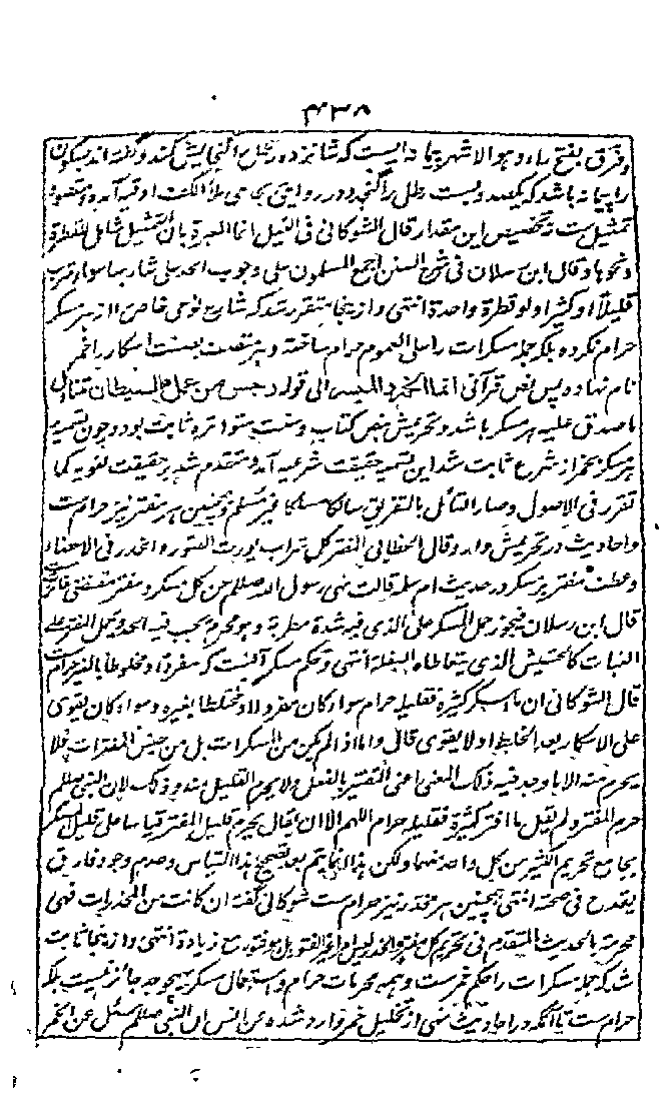 ۴۳۸
وفرق بفتح راء و هو الاشهر پیمانه ایست که شانزده رطل را گنجایش کند و گفته اند بسکون
را پیمانه باشد که یکصد و بست رطل را گنجد و در روایتی بجای ملأ الکف اوقیه آمده و مقصود
تمثیل ست نه تخصیص این مقدار قال الشوکانی فی النیل انما العبرة بان التمثیل شامل للقطرة
و نحوها و قال ابن رسلان فی شرح السنن اجمع المسلمون علی وجوب الحد علی شاربها سواء شرب
قلیلاً او کثیرا و لو قطرة واحدة انتهی و ازینجا متقرر شد که شارع نوعی خاص را از هر مسکر
حرام نکرده بلکه جمله مسکرات را علی العموم حرام ساخته و بر صفت اسکار را خمر
نام نهاده پس نص قرآنی انما الخمر و المیسر الی قوله رجس من عمل الشیطان متناول
ما صدق علیه هر مسکر باشد و تحریمش بنص کتاب و سنت متواتره ثابت بود و چون تسمیه
هر مسکر بخمر از شرع ثابت شد این تسمیه حقیقت شرعیه آمد و متقدم شد بر حقیقت لغویه کما
تقرر فی الاصول و صار القائل بالتفریق سالکا مسلکا غیر مسلم و همچنین هر مفتر نیز حرام ست
و احادیث در تحریمش وارد و قال الخطابی المفتر کل شراب یورث الفتور و الخدر فی الاعضاء
و عطف مفتر بر مسکر در حدیث ام سلمه قالت نهی رسول الله صلعم عن کل مسکر و مفتر مقتضی مغایرت ست
قال ابن رسلان فیجوز حمل المسکر علی الذی فیه شدة مطربة و هو محرم یجب فیه الحد و یحمل المفتر علی
النبات کالحشیش الذی یتعاطاه السفلة انتهی و حکم مسکر آنست که مفردا و مخلوطا بالغیر حرام ست
قال الشوکانی ان ما اسکر کثیره فقلیله حرام سواء کان مفردا او مختلطا بغیره و سواء کان یقوی
علی الاسکار بعد الخلط او لا یقوی قال و اما اذا لم یکن من المسکرات بل من جنس المفترات فلا
یحرم منه الا ما وجد فیه ذلک المعنی اعنی التفتیر بالفعل و لا یحرم القلیل منه و ذلک لان النبی صلعم
حرم المفتر و لم یقل ما افتر کثیره فقلیله حرام اللهم الا ان یقال یحرم قلیل المفتر قیاسا علی قلیل المسکر
بجامع تحریم الکثیر من کل واحد منهما و لکن هذا انما یتم بعد تصحیح هذا القیاس و عدم وجود فارق
یقدح فی صحته انتهی همچنین هر مخدر نیز حرام ست شوکانی گفته ان کانت من المخدرات فهی
محرمة بالحدیث المتقدم فی تحریم کل مفتر مع زیادة انتهی و ازینجا ثابت
شد که جمله مسکرات را حکم خمرست و همه محرمات حرام و استعمال مسکر بهیچوجه جائز نیست بلکه
حرام ست تا آنکه در احادیث نهی از تخلیل خمر وارد شده عن انس ان النبی صلعم سئل عن الخمر